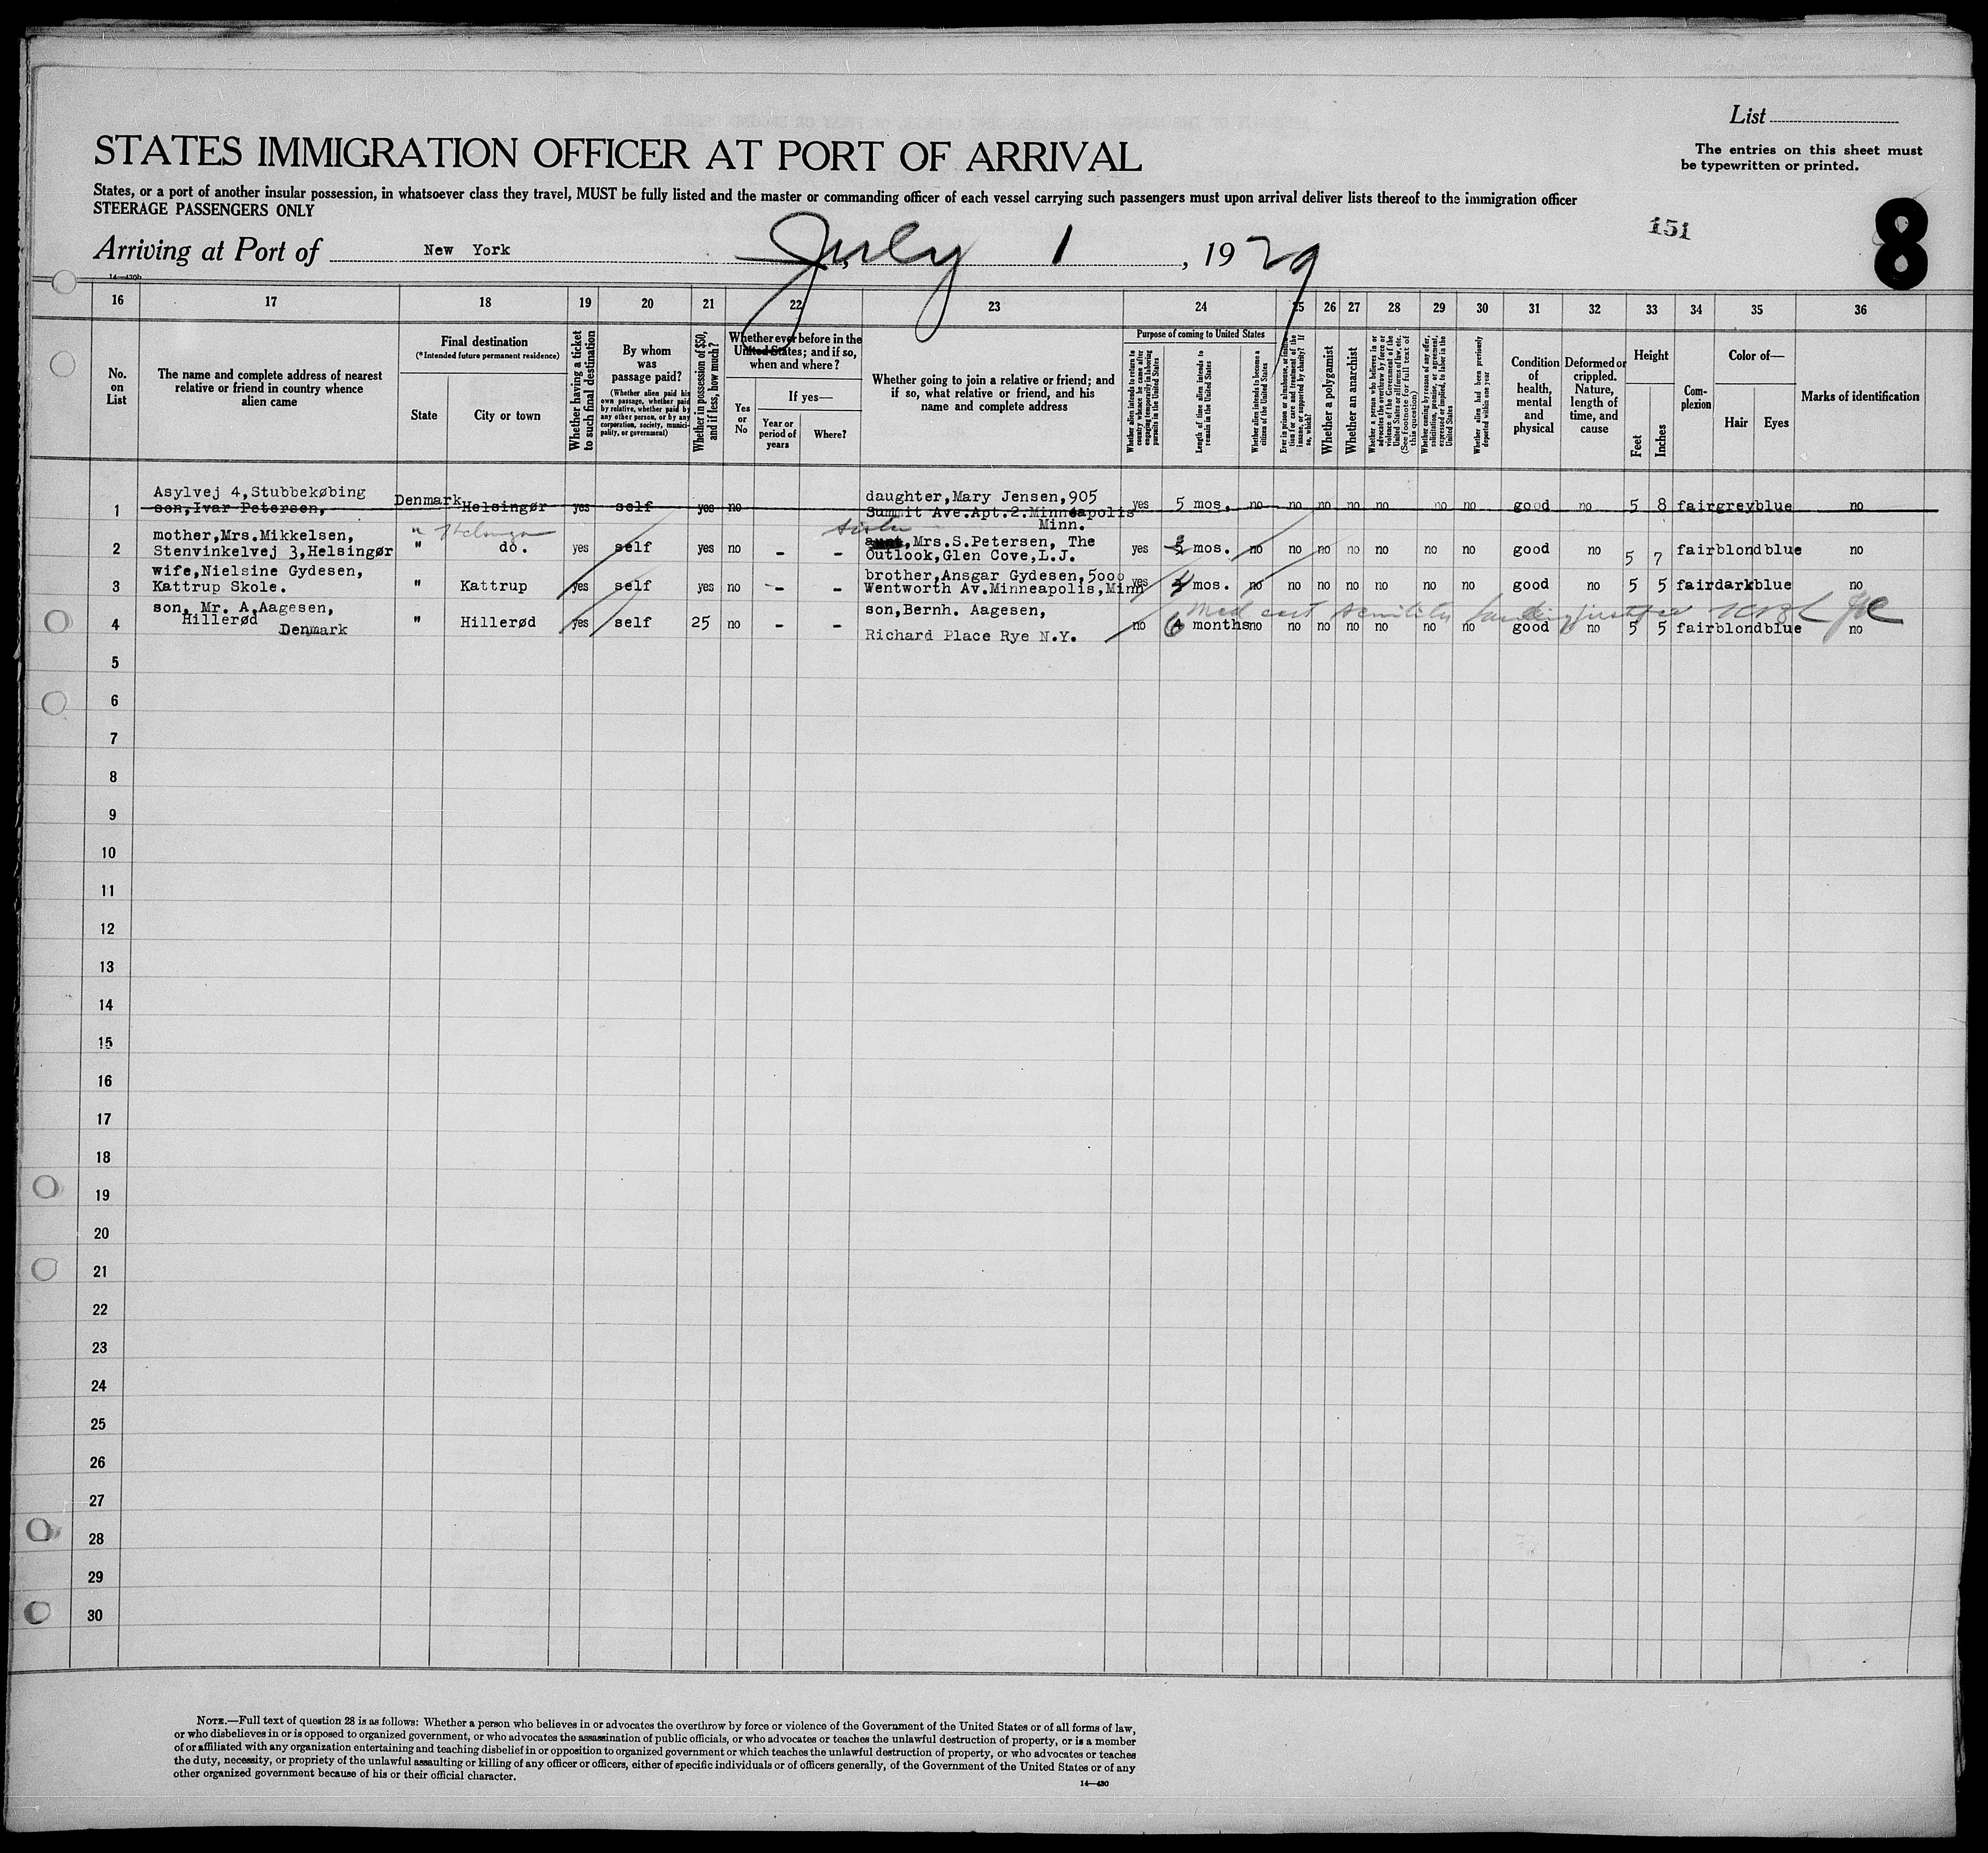 List
The entries on this sheet must
be typewritten or printed.
STATES IMMIGRATION OFFICER AT PORT OF ARRIVAL
States, or a port of another insular possession, in whatsoever class they travel, MUST be fully listed and the master or commanding officer of each vessel carrying such passengers must upon arrival deliver lists thereof to the immigration officer
STEERAGE PASSENGERS ONLY
151
8
Arriving at Port of New York, July 1, 1929
14—430b
16 17 18 19 20 21 22 23 24 25 26 27 28 29 30 31 32 33 34 35 36
No. on List
The name and complete address of nearest relative or friend in country whence alien came
Final destination
(*Intended future permanent residence)
State
City or town
Whether having a ticket to such final destination
By whom was passage paid?
(Whether alien paid his own passage, whether paid by relative, whether paid by any other person, or by any corporation, society, municipality, or government)
Whether in possession of $50, and if less, how much?
Whether ever before in the United States; and if so, when and where?
Yes or No
If yes—
Year or period of years
Where?
Whether going to join a relative or friend; and if so, what relative or friend, and his name and complete address
Purpose of coming to United States
Whether alien intends to return to country whence he came after engaging temporarily in laboring pursuits in the United States
Length of time alien intends to remain in the United States
Whether alien intends to become a citizen of the United States
Ever in prison or almshouse, or institution for care and treatment of the insane, or supported by charity? If so, which?
Whether a polygamist
Whether an anarchist
Whether a person who believes in or advocates the overthrow by force or violence of the Government of the United States or all forms of law, etc. (See footnote for full text of this question)
Whether coming by reason of any offer, solicitation, promise, or agreement, expressed or implied, to labor in the United States
Whether alien had been previously deported within one year
Condition of health, mental and physical
Deformed or crippled. Nature, length of time, and cause
Height
Feet
Inches
Complexion
Color of—
Hair
Eyes
Marks of identification
Asylvej 4,Stubbekøbing daughter,Mary Jensen,905
1 son,Ivar Petersen, Denmark Helsingør yes self yes no Summit Ave.Apt.2.Minneapolis yes 5 mos. no no no no no no no good no 5 8 fair grey blue no
Minn.
mother,Mrs.Mikkelsen, " sister
2 Stenvinkelvej 3,Helsingør " do. yes self yes no - - aunt,Mrs.S.Petersen, The yes mos. no no no no no no no good no 5 7 fair blond blue no
Outlook,Glen Cove,L.J.
wife,Nielsine Gydesen, brother,Ansgar Gydesen,5000
3 Kattrup Skole. " Kattrup yes self yes no - - Wentworth Av.Minneapolis,Minn yes mos. no no no no no no no good no 5 5 fair dark blue no
son, Mr. A.Aagesen, son,Bernh. Aagesen, Med cert senility
4 Hillerød " Hillerød yes self 25 no - - no 6 months no no no no no no no good no 5 5 fair blond blue no
Denmark Richard Place Rye N.Y.
5
6
7
8
9
10
11
12
13
14
15
16
17
18
19
20
21
22
23
24
25
26
27
28
29
30
NOTE.—Full text of question 28 is as follows: Whether a person who believes in or advocates the overthrow by force or violence of the Government of the United States or of all forms of law,
or who disbelieves in or is opposed to organized government, or who advocates the assassination of public officials, or who advocates or teaches the unlawful destruction of property, or is a member
of or affiliated with any organization entertaining and teaching disbelief in or opposition to organized government or which teaches the unlawful destruction of property, or who advocates or teaches
the duty, necessity, or propriety of the unlawful assaulting or killing of any officer or officers, either of specific individuals or of officers generally, of the Government of the United States or of any
other organized government because of his or their official character.
14—430